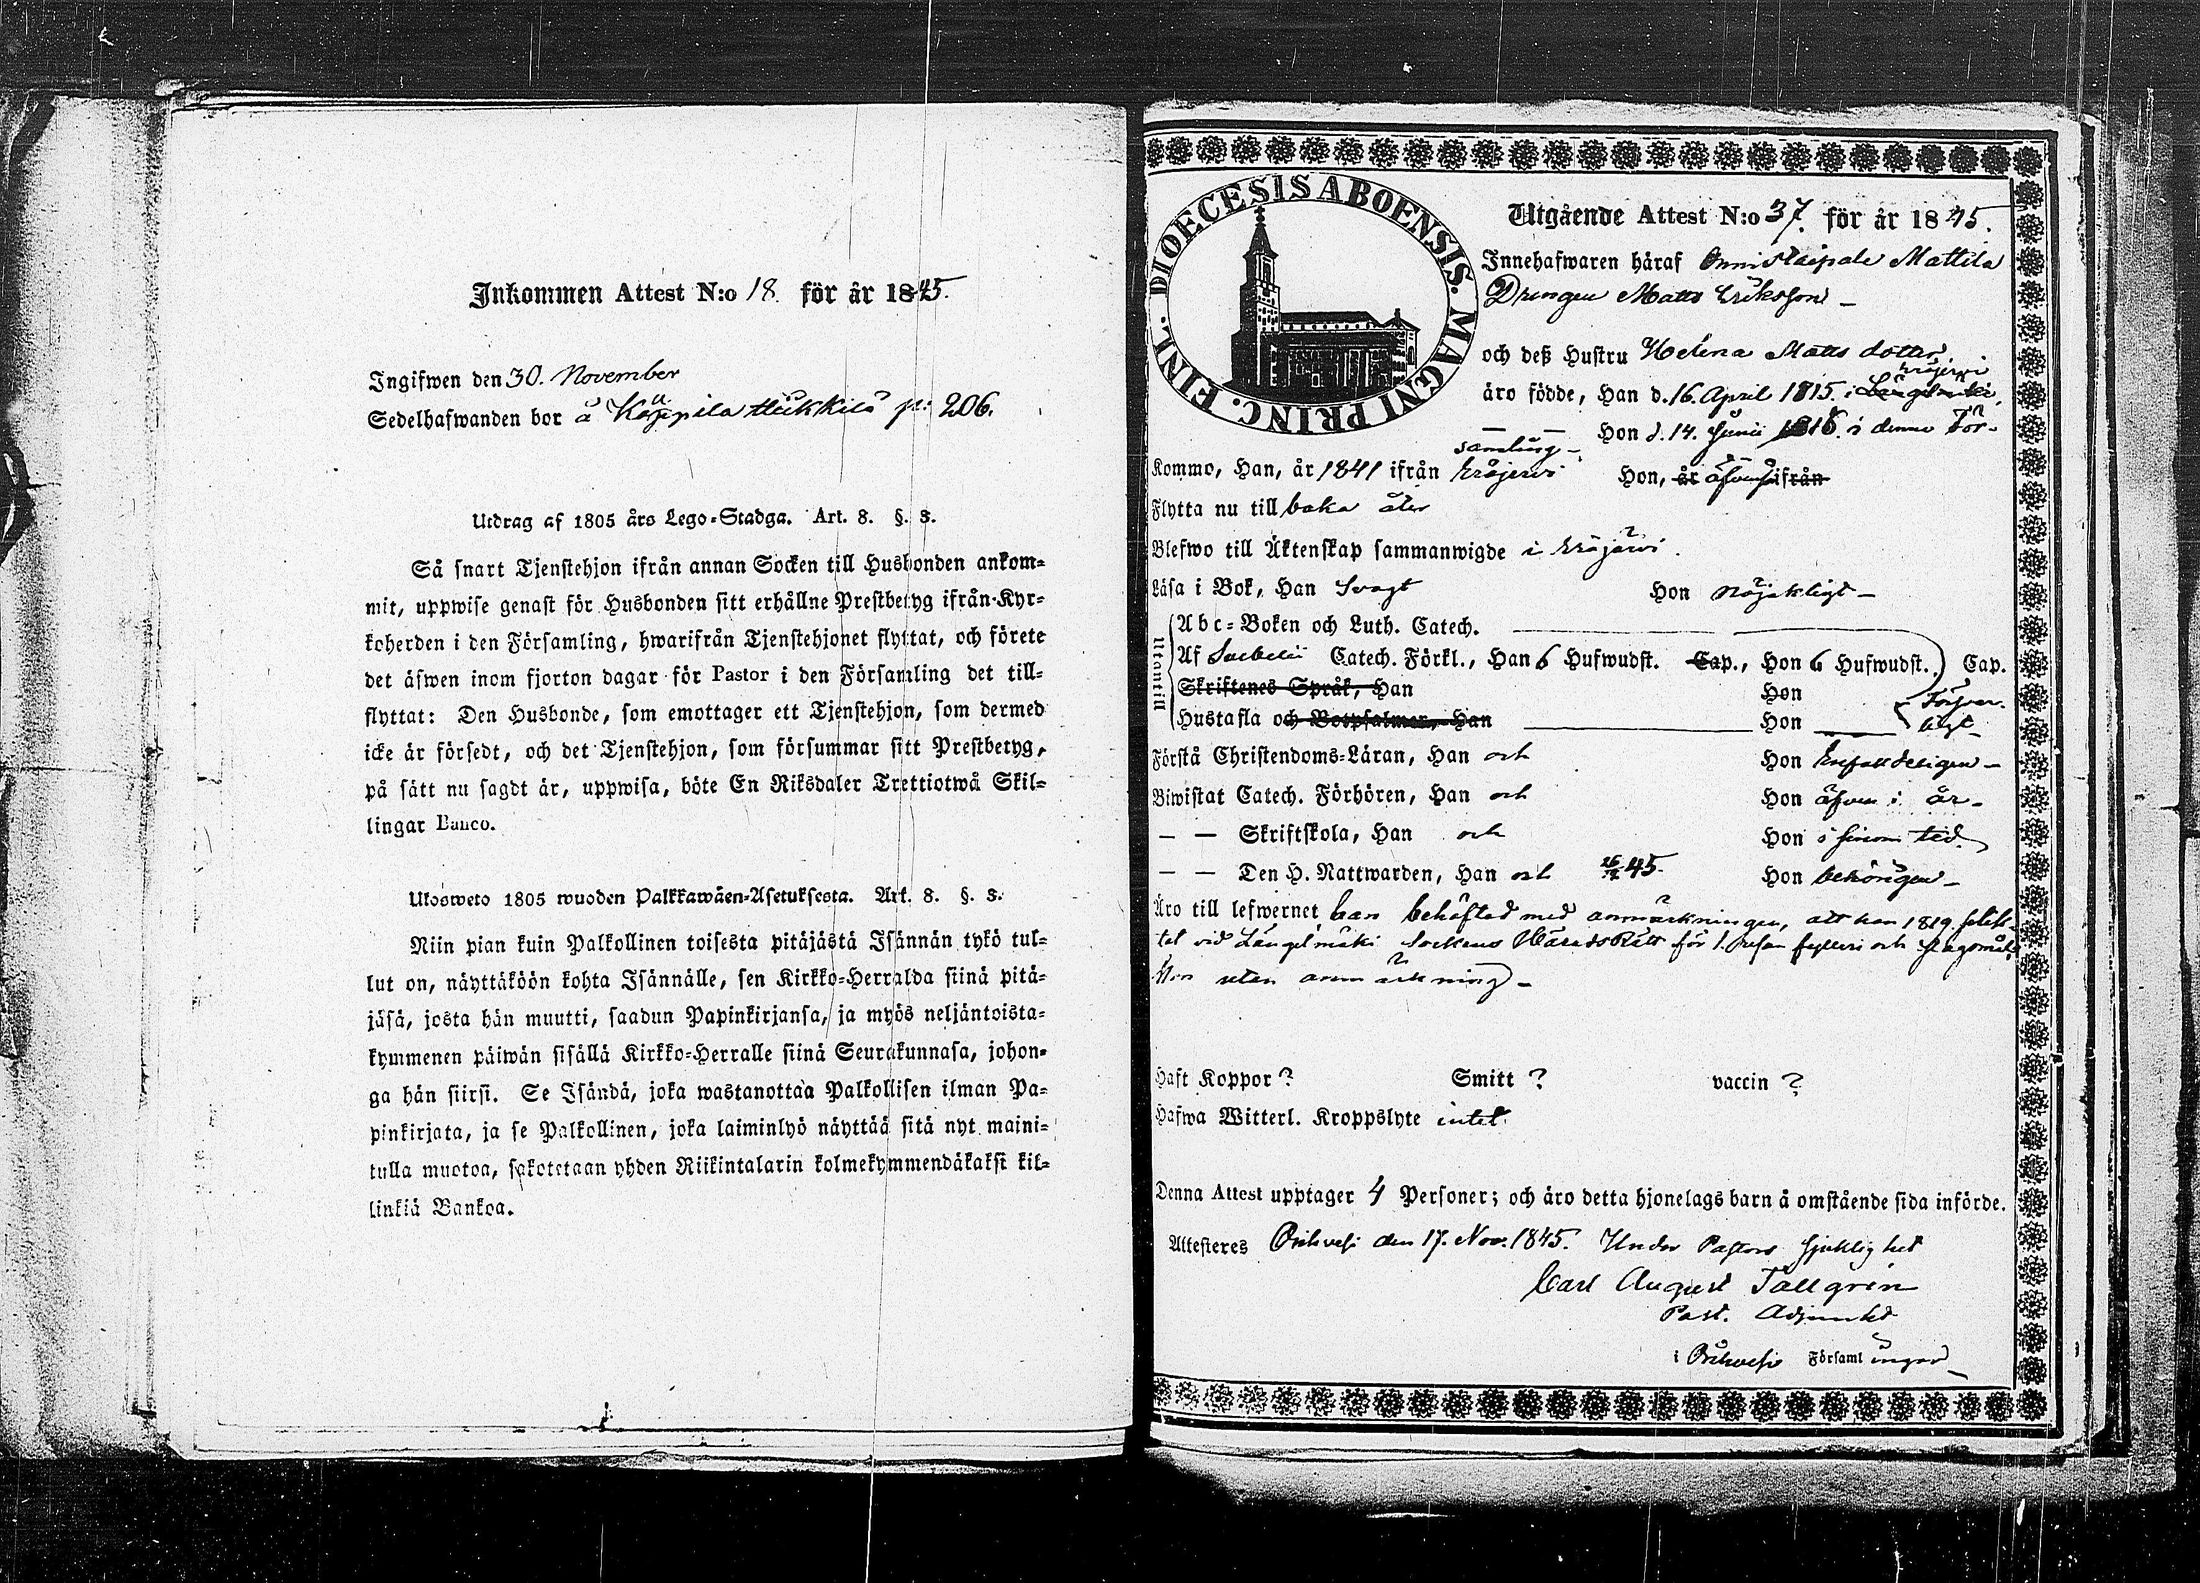 Inkommen Attest N:o 18. för år 1845.
Ingifwen den 30. November
Sedelhafwanden bor å Käppila Heikkilä p: 206.
Utdrag af 1805 års Lego-Stadga. Art. 8. §. 3.
Så snart Tjenstehjon ifrån annan Socken till Husbonden ankom-
mit, uppwise genast för Husbonden sitt erhållne Prestbetyg ifrån Kyr-
koherden i den Församling, hwarifrån Tjenstehjonet flyttat, och förete
det äfwen inom fjorton dagar för Pastor i den Församling det till-
flyttat: Den Husbonde, som emottager ett Tjenstehjon, som dermed
icke är försedt, och det Tjenstehjon, som försummar sitt Prestbetyg,
på sätt nu sagdt är, uppwisa, böte En Riksdaler Trettiotwå Skil-
lingar Banco.
Ulosweto 1805 wuoden Palkkawäen-Asetuksesta. Art. 8. §. 3.
Niin pian kuin Palkollinen toisesta pitäjästä Isännän tykö tul-
lut on, näyttäköön kohta Isännälle, sen Kirkko-Herralda siinä pitä-
jäsä, josta hän muutti, saadun Papinkirjansa, ja myös neljäntoista-
kymmenen päiwän sisällä Kirkko-Herralle siinä Seurakunnasa, johon-
ga hän siirsi. Se Isändä, joka wastanottaa Palkollisen ilman Pa-
pinkirjata, ja se Palkollinen, joka laiminlyö näyttää sitä nyt maini-
tulla muotoa, sakotetaan yhden Riikintalarin kolmekymmendäkaksi kil-
linkiä Bankoa.
DIOECESIS ABOENSIS. MAGNI PRINC. FINL.
Utgående Attest N:o 37. för år 1845.
Innehafwaren häraf Onnistaipale Mattila
Drengen Matts Eriksson
och deß Hustru Helena Matts dotter
Eräjerwi
äro födde, Han d. 16. April 1815. i Längelmäki,
— — Hon d. 14. Junii 1816. i denna För-
samling
Komme, Han, år 1841 ifrån Eräjerwi Hon, år äfwen ifrån
Flytta nu till baka åter
Blefwo till Äktenskap sammanwigde i Eräjärwi.
Läsa i Bok, Han Svagt Hon nöjaktigt
Utantill
Abc-Boken och Luth. Catech.
Af Svebelii Catech. Förkl., Han 6 Hufwudst. Cap., Hon 6 Hufwudst. Cap.
Skriftenes Språk, Han Hon
Hustafla och Botpsalmer, Han Hon
Förstå Christendoms-Läran, Han och Hon Enfalldeligen
Biwistat Catech. Förhören, Han och Hon äfven i år
— — Skriftskola, Han och Hon i sinom tid.
— — Den H. Nattwarden, Han och 45. Hon behörigen
Äro till lefwernet han behäftad med anmärkningen, att han 1819. plik-
tat vid Längelmäki Sockens Härads Rätt för 1. resan fylleri och slagsmål,
Hon utan anmärkning
Haft Koppor? Smitt? vaccin?
Hafwa Witterl. Kroppslyte intet.
Denna Attest upptager 4 Personer; och äro detta hjonelags barn å omstående sida införde.
Attesteres Orihvesi den 17. Nov. 1845. Under Pastors sjuklighet
Carl August Tallgrén
Past. Adjunkt
i Orihvesi Församlingar